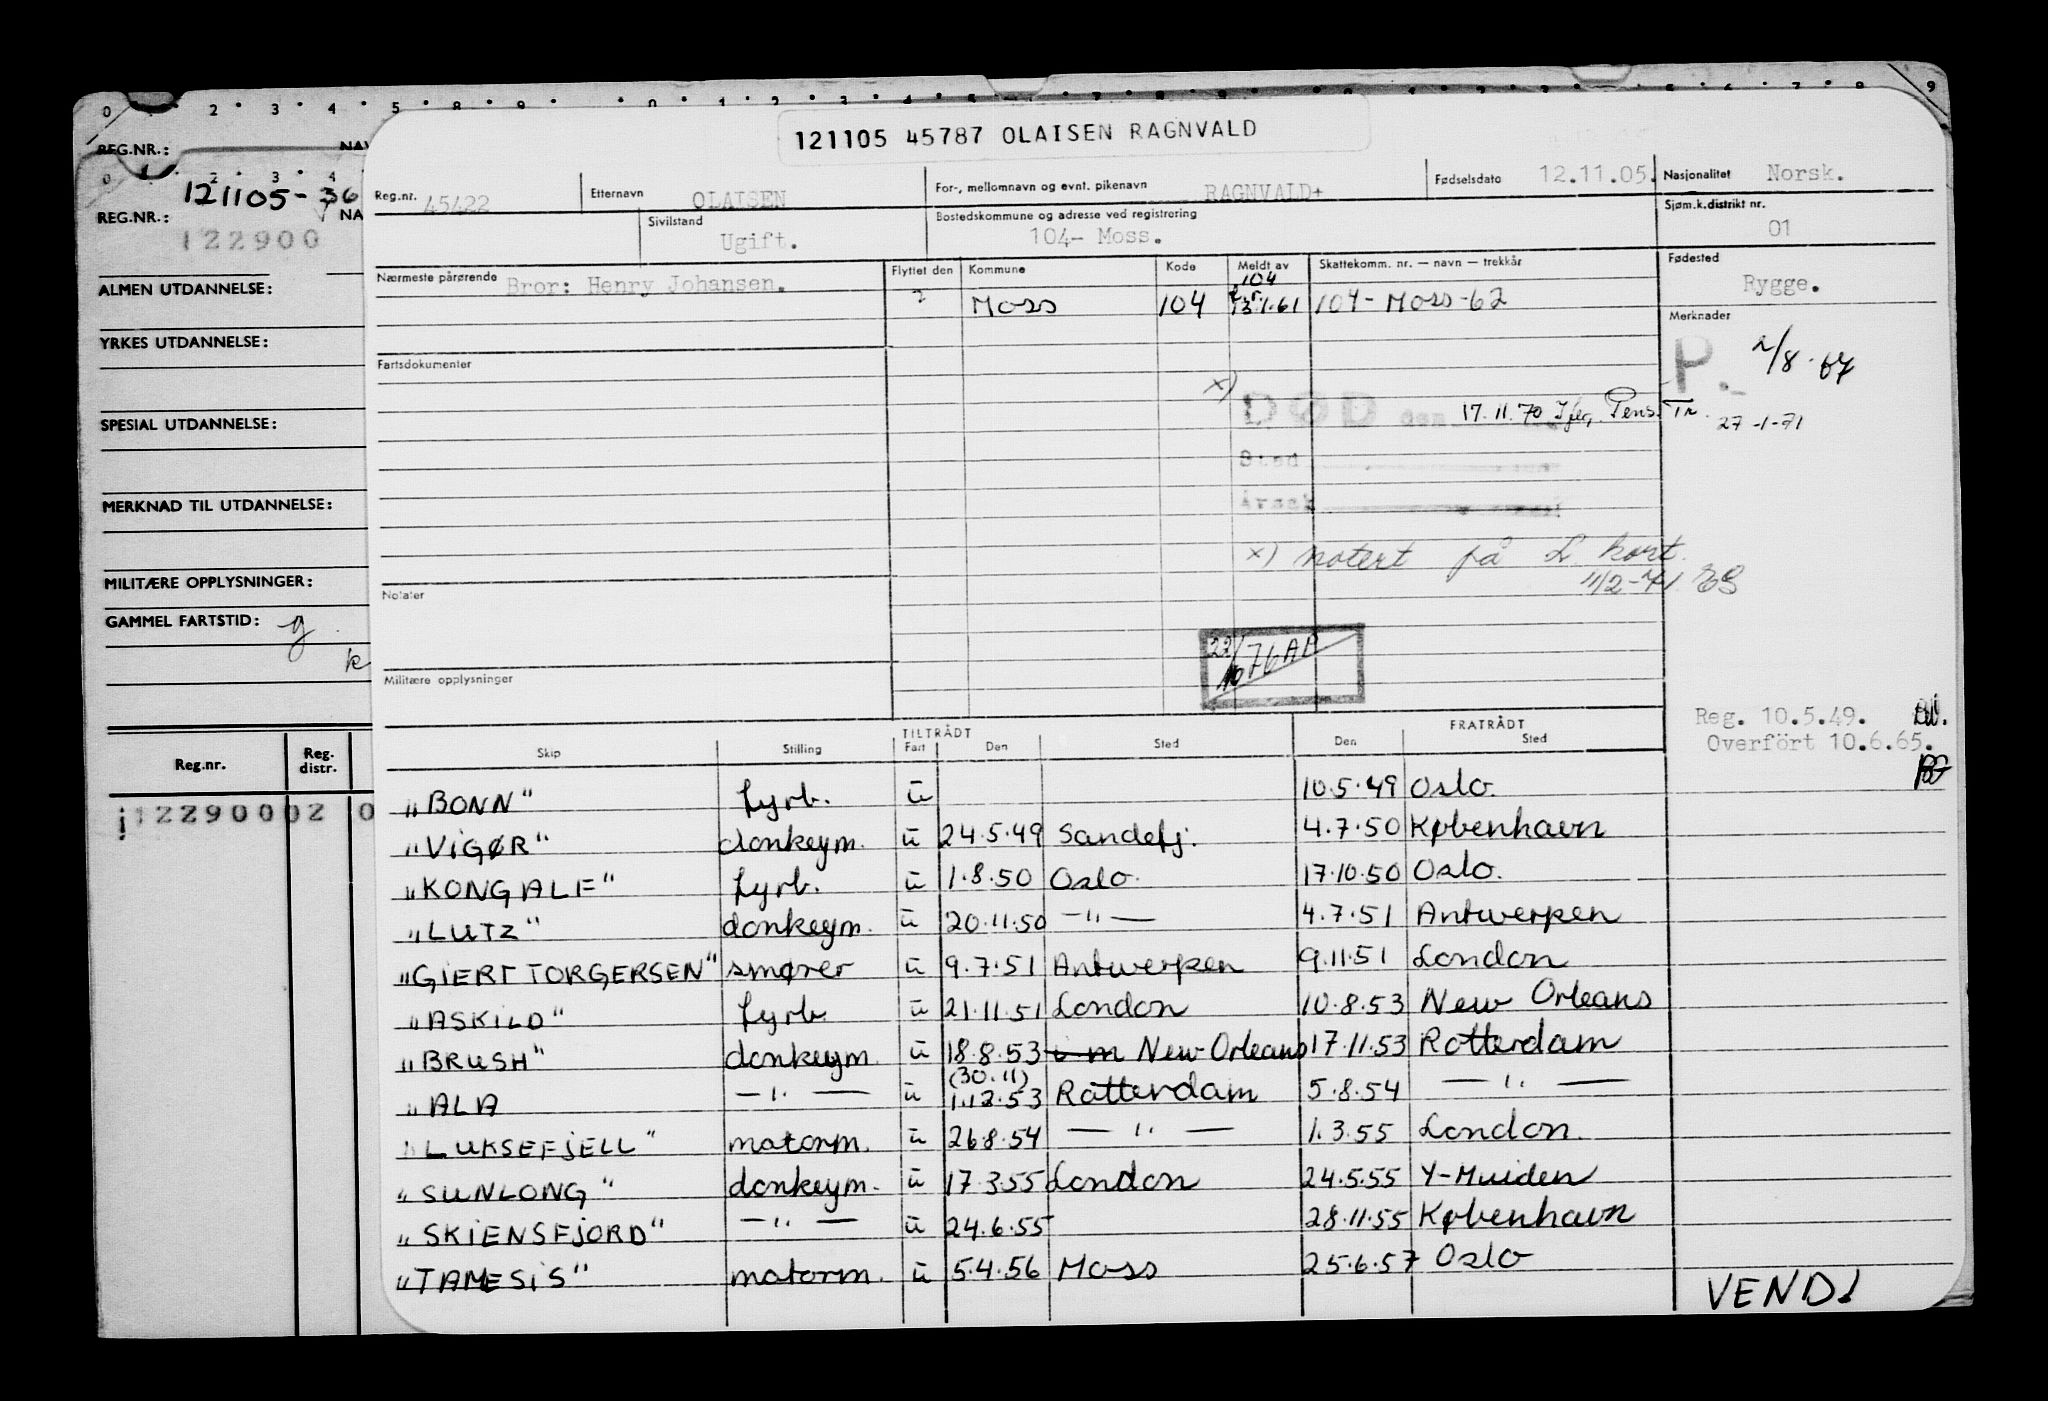 REG.NR.:
121105-36
REG.NR.: NA
122900
ALMEN UTDANNELSE:
YRKES UTDANNELSE:
SPESIAL UTDANNELSE:
MERKNAD TIL UTDANNELSE:
MILITÆRE OPPLYSNINGER:
GAMMEL FARTSTID: g.
k
Reg.nr. Reg. distr.
122900 02 0
121105 45787 OLAISEN RAGNVALD
Reg.nr. 45422 Etternavn OLAISEN For-, mellomnavn og evnt. pikenavn RAGNVALD+ Fødselsdato 12.11.05. Nasjonalitet Norsk.
Sivilstand Ugift. Bostedskommune og adresse ved registrering 104- Moss. Sjøm.k.distrikt nr. 01
Nærmeste pårørende Bror: Henry Johansen. Flyttet den Kommune Kode Meldt av Skattekomm. nr. — navn — trekkår Fødested Rygge.
? Moss 104 104 13.1.61 104-Moss-62
Merknader
P. 2/8-67
Fartsdokumenter
x) DØD den 17.11.70 Iføg. Pens.Tr. 27-1-71
Sted
Årsak
x) notert på L kort.
11/2-71 ES
Notater
22/10 76 AA
Militære opplysninger
Reg. 10.5.49.
Overfört 10.6.65.
TILTRÅDT FRATRÅDT
Skip Stilling Fart Den Sted Den Sted
"BONN" fyrb. ū 10.5.49 Oslo.
"VIGØR" donkeym. ū 24.5.49 Sandefj. 4.7.50 København
"KONG ALF" fyrb. ū 1.8.50 Oslo. 17.10.50 Oslo.
"LUTZ" donkeym. ū 20.11.50 —"— 4.7.51 Antwerpen
"GIERT TORGERSEN" smører ū 9.7.51 Antwerpen 9.11.51 London
"ASKILD" fyrb ū 21.11.51 London 10.8.53 New Orleans
"BRUSH" donkeym. ū 18.8.53 New Orleans 17.11.53 Rotterdam
"ALA —"— ū (30.11) 1.12.53 Rotterdam 5.8.54 —"—
"LUKSEFJELL" motorm. ū 26.8.54 —"— 1.3.55 London.
"SUNLONG" donkeym. ū 17.3.55 London 24.5.55 Y-Muiden
"SKIENSFJORD" —"— ū 24.6.55 28.11.55 København
"TAMESIS" motorm. ū 5.4.56 Moss 25.6.57 Oslo
VEND!